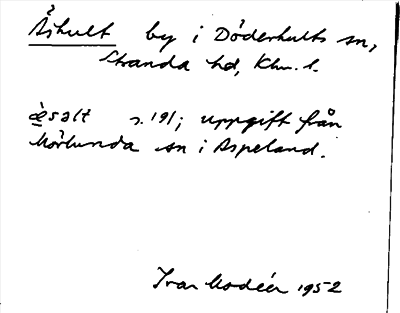 Åshult by i Döderhults sn,
Stranda hd, Klm. l.
èsalt s. 191; uppgift från
Mörlunda sn i Aspeland.
Ivar Modéer 1952